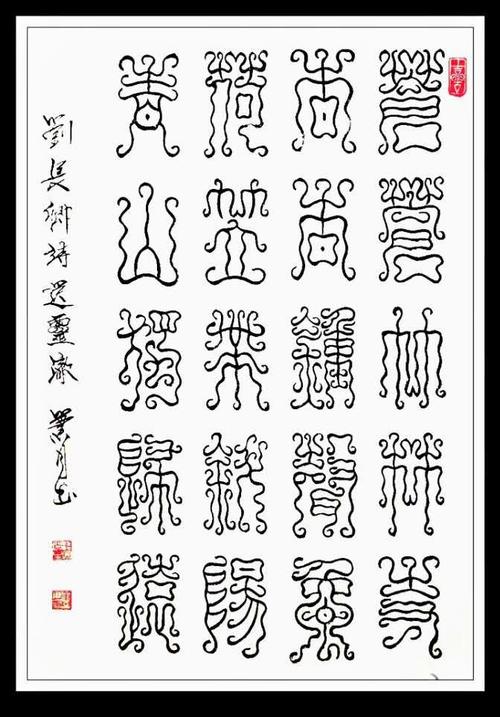 蒼蒼竹林寺
杳杳鐘聲晚
荷笠帶斜陽
青山獨歸遠
劉長卿詩送靈澈